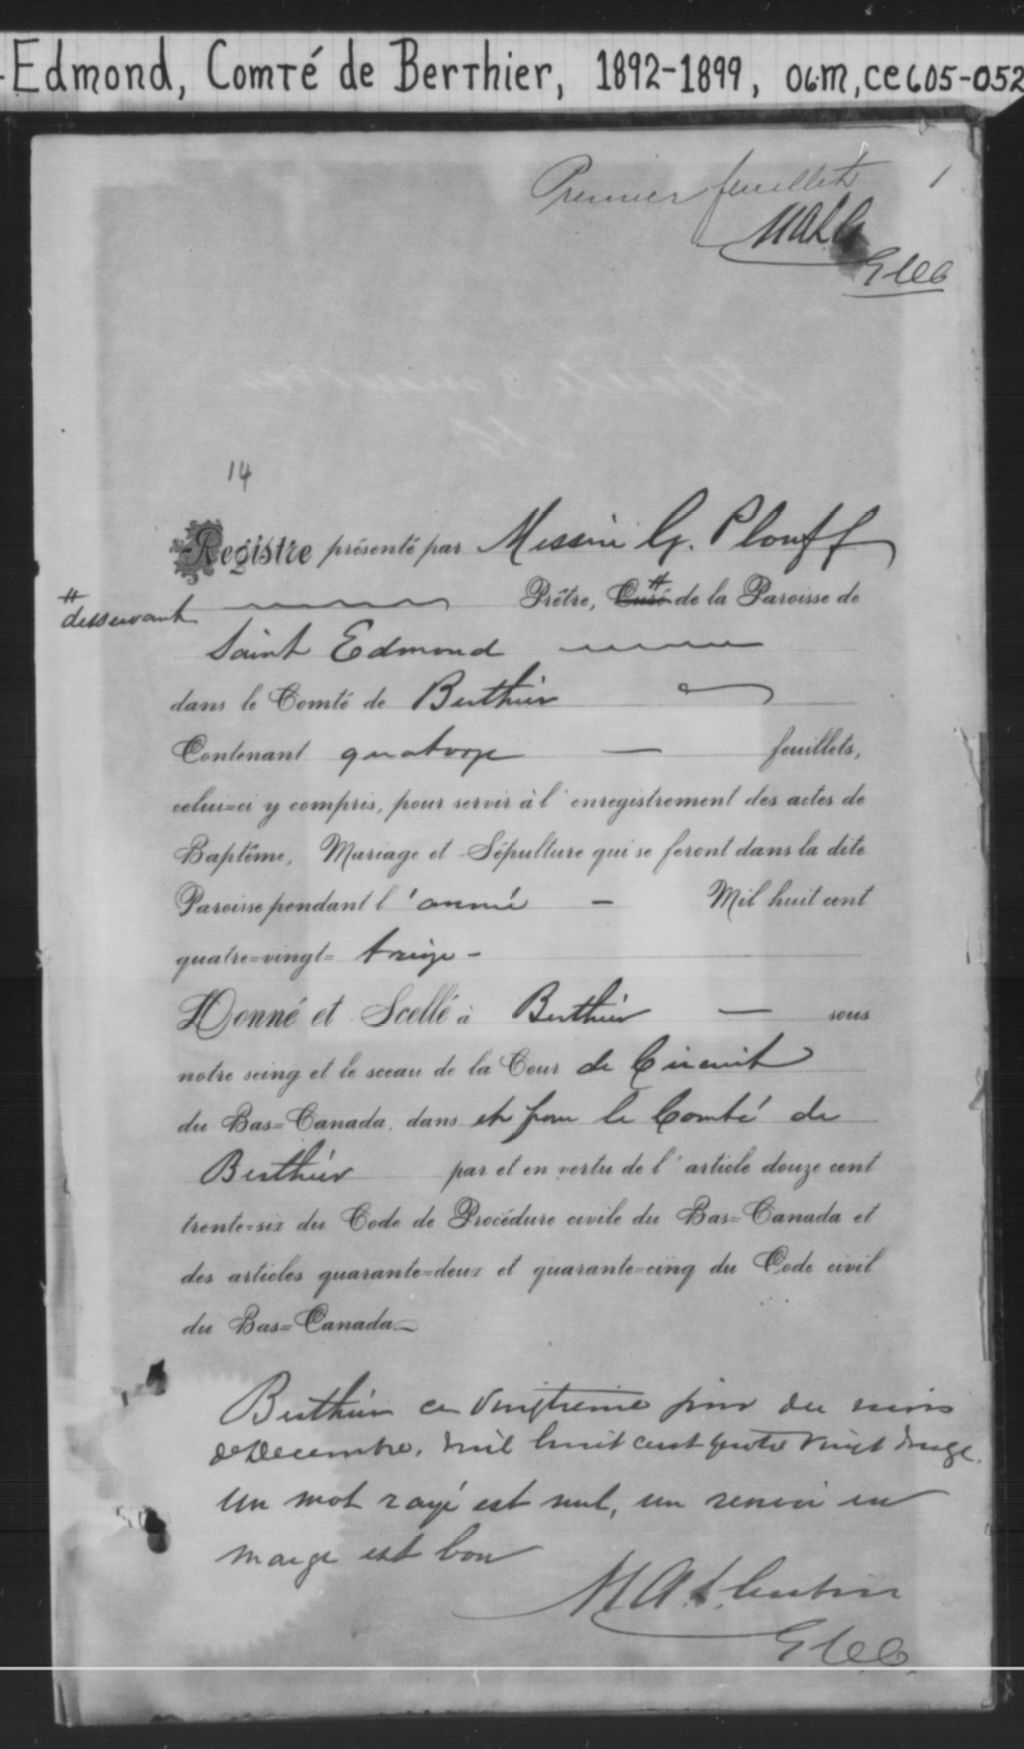 -Edmond, Comté de Berthier, 1892-1899, 06M, CE605-052
Premier feuillet 1
G C C
14
Registre présenté par Messire G. Plouff
# desservant Prêtre, Curé # de la Paroisse de
Saint Edmond
dans le Comté de Berthier
Contenant quatorze — feuillets,
celui=ci y compris, pour servir à l'enregistrement des actes de
Baptême, Mariage et Sépulture qui se feront dans la dite
Paroisse pendant l'année — Mil huit cent
quatre=vingt= treize -
Donné et Scellé à Berthier — sous
notre seing et le sceau de la Cour de Circuit
du Bas=Canada, dans et pour le Comté de
Berthier par et en vertu de l'article douze cent
trente=six du Code de Procédure civile du Bas=Canada et
des articles quarante=deux et quarante=cinq du Code civil
du Bas=Canada—
Berthier ce vingtieme jour du mois
de Decembre, mil huit cent quatre vingt douze.
Un mot rayé est nul, un renvoi en
marge est bon
G C C.